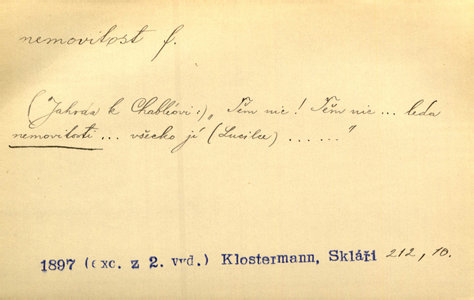 nemovitost f.
(Jahrda k Chabléovi:) „Těm nic! Těm nic... leda
nemovitosti... všecko jí (Lucilce) ......"
1897 (exc. z 2. vyd.) Klostermann, Skláři 212, 10.